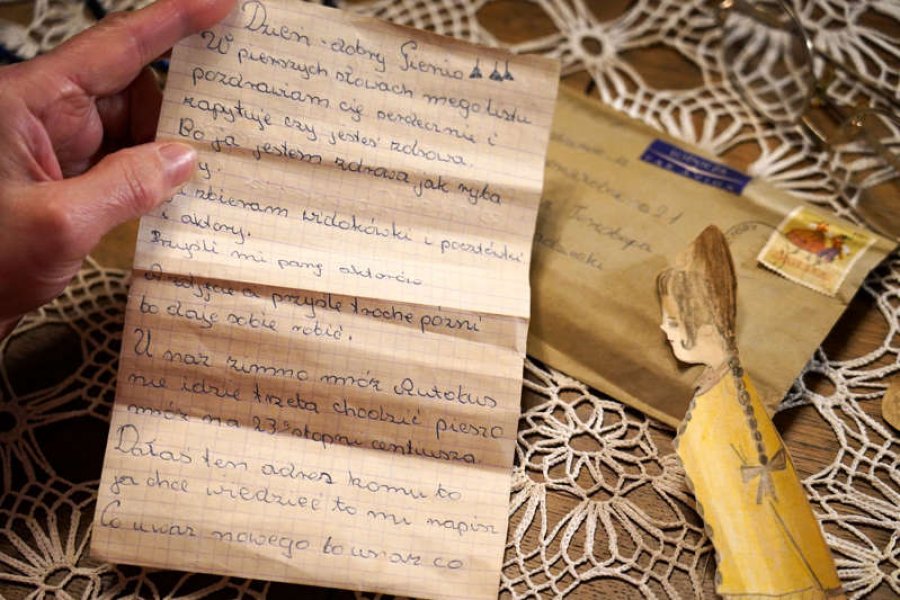 Dzień dobry Gienio
W pierwszych słowach mego listu
pozdrawiam cię serdecznie i
zapytuje czy jesteś zdrowa.
Bo ja jestem zdrowa jak ryba
y.
zbieram widokówki i pocztówki
i aktory.
Przyśli mi parę aktorów
a przyśle trochę pózni
bo daje sobie robić.
U nas zimno mróz Autobus
nie idzie trzeba chodzić pieszo
mróz na 23° stopni centiusza
Dałaś tem adres komu to
ja chce wiedzieć to mi napisz
Co uwas nowego to uras co
LOTNICZA
PAR AVION
021